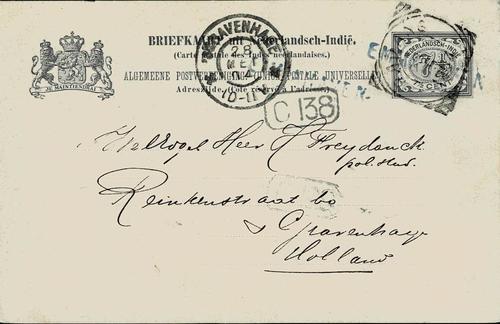 BRIEFKAART uit Nederlandsch-Indië.
(Carte postale des Indes néerlandaises.)
ALGEMEENE POSTVEREENIGING (UNION POSTALE UNIVERSELLE)
Adreszijde. (Côté réservé à l'adresse.)
JE MAINTIENDRAI
'S GRAVENHAGE
28
MEI
10-11V
NEDERLANDSCH-INDIË
7½
CENT
C 138
WelEdel Heer H Freydanck
Reinkenstraat
s Gravenhage
Holland